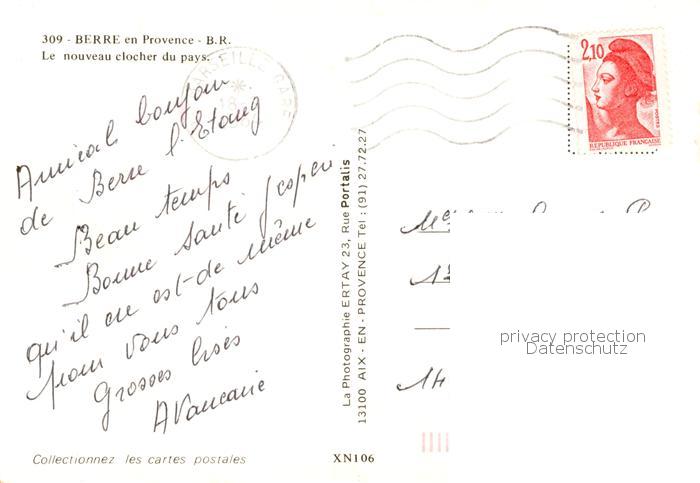 309 - BERRE en Provence - B.R.
Le nouveau clocher du pays.
MARSEILLE GARE
2,10
REPUBLIQUE FRANÇAISE
Amical bonjour
de Berre l'Etang
Beau temps
Bonne santé j'espère
qu'il en est-de même
pour vous tous
Grosses bises
La Photographie ERTAY 23, Rue Portalis
13100 AIX - EN - PROVENCE Tél : (91) 27.72.27
14
privacy protection
Datenschutz
Collectionnez les cartes postales
XN106